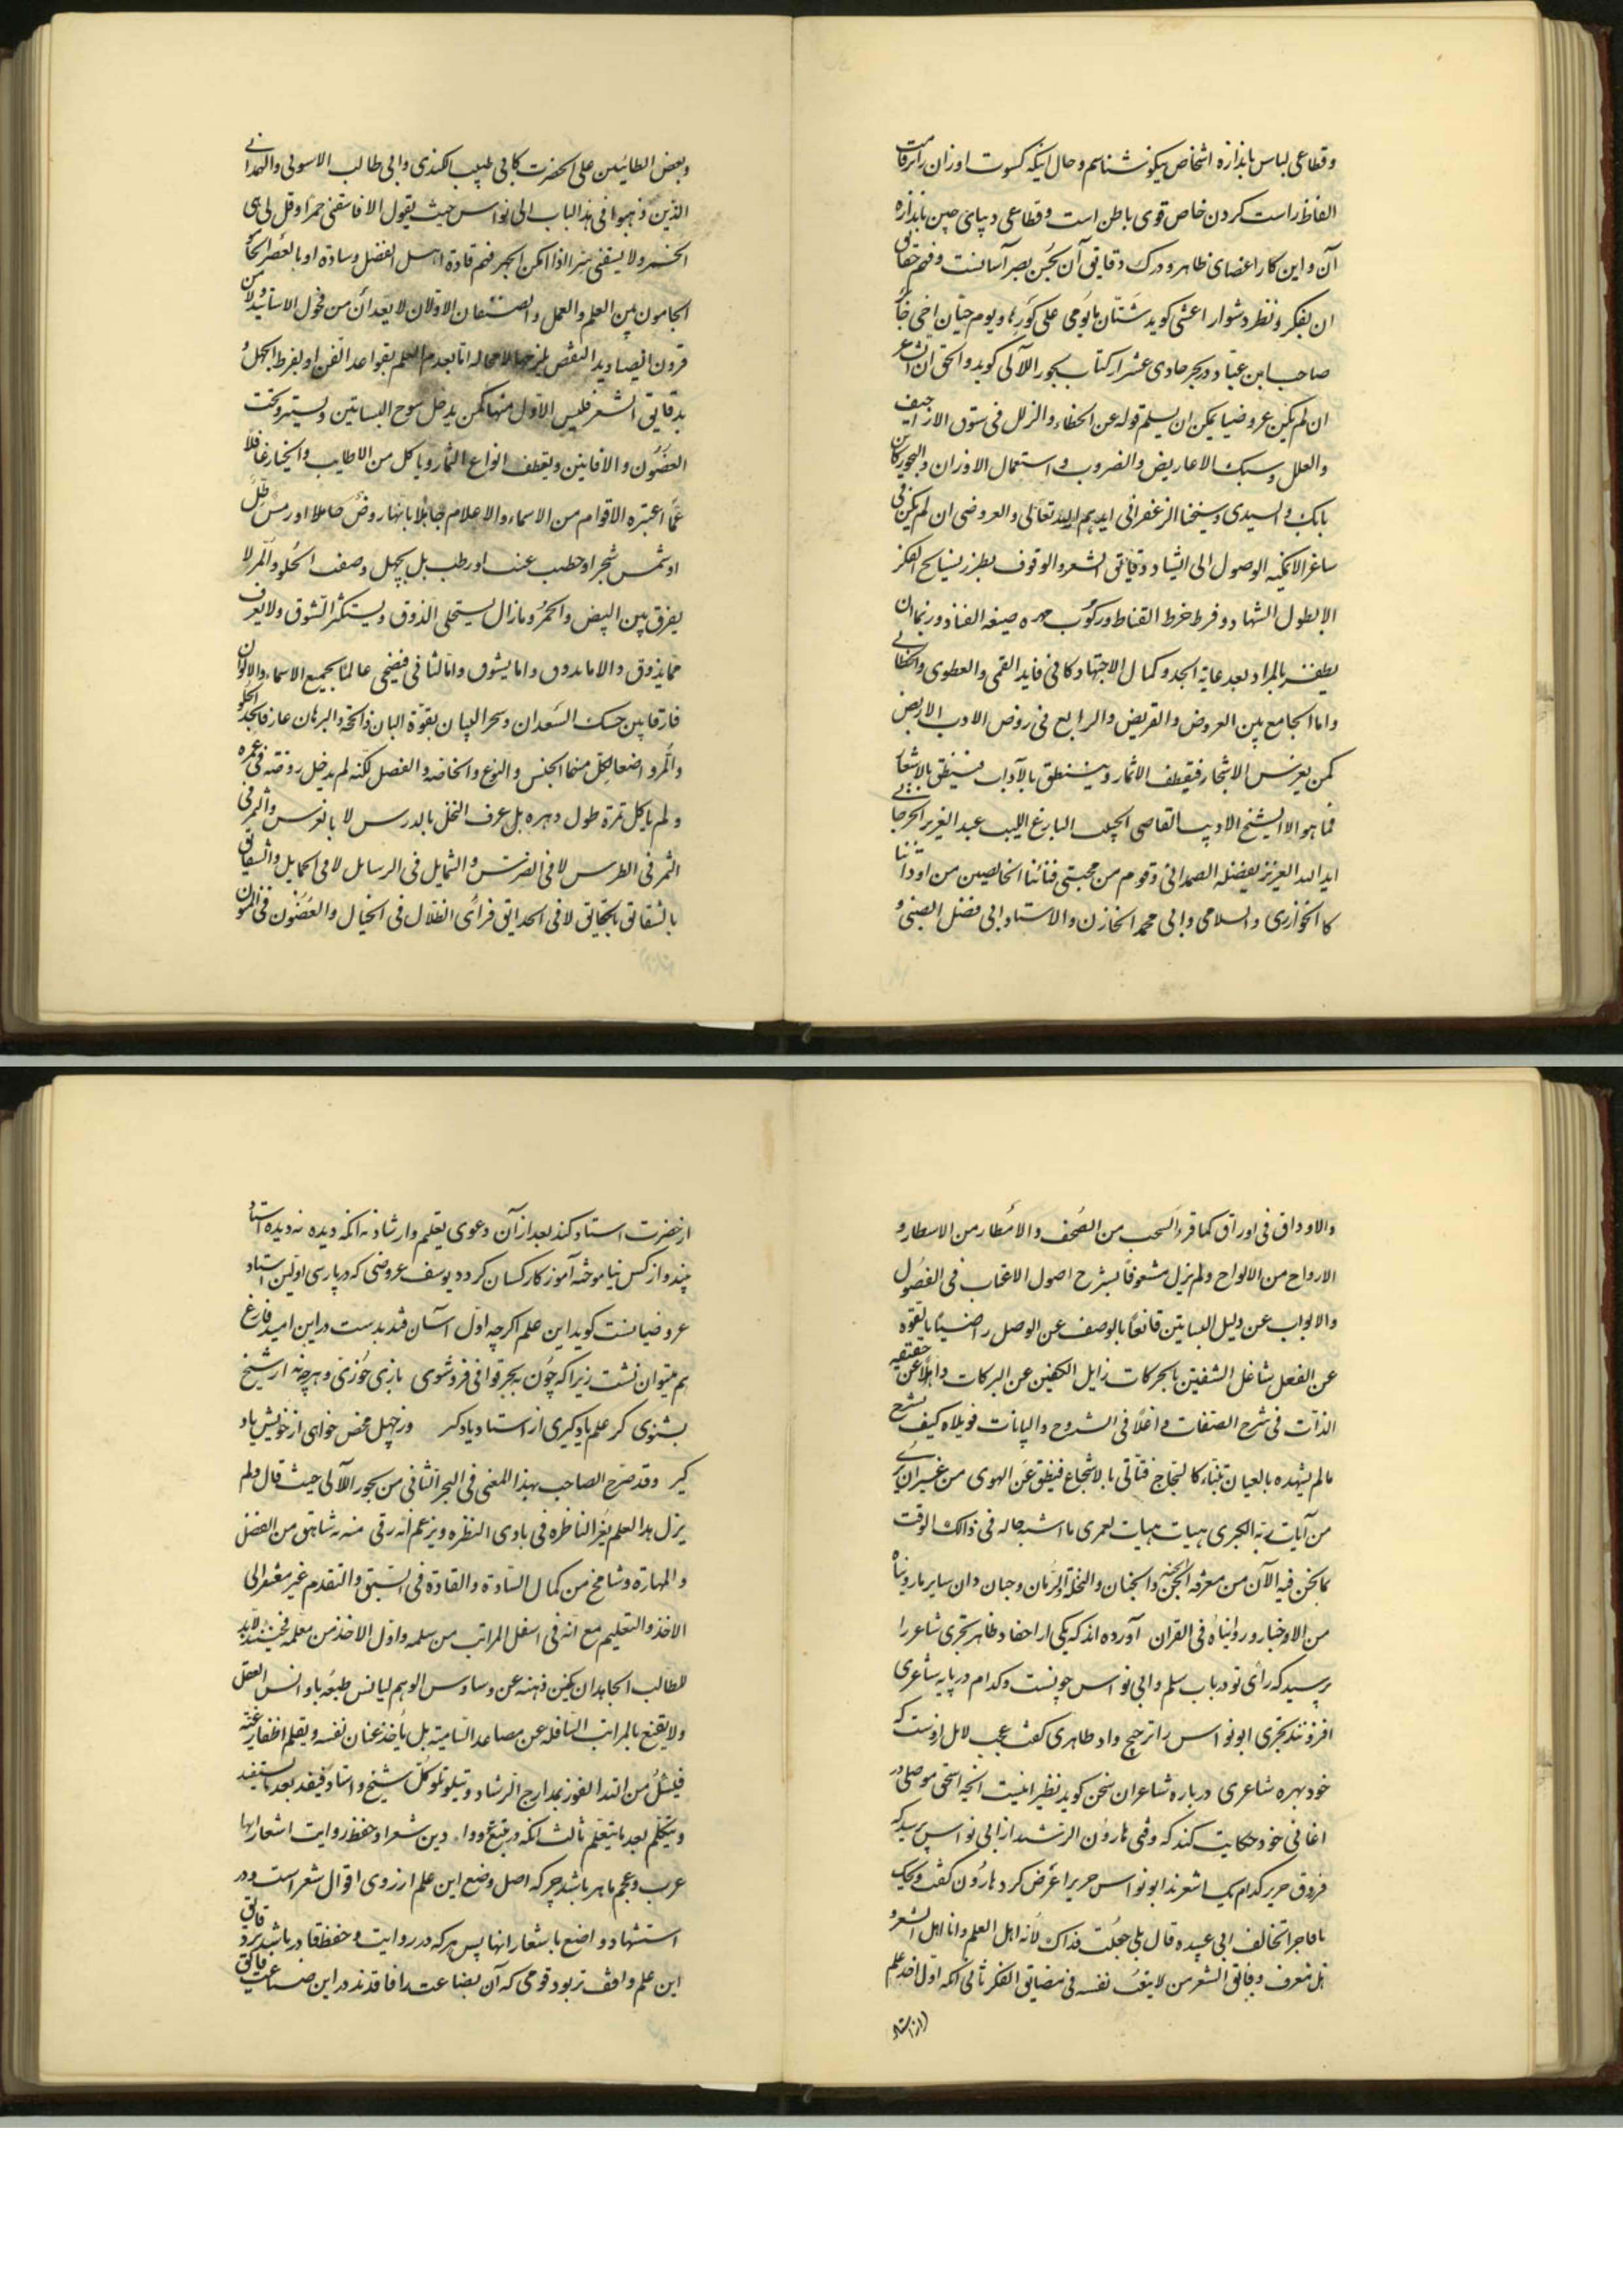 وقطاعی لباس باندازه اشخاص نیکو شناسم و حال اینکه کسوت اوزان را بر قامت
الفاظ راست کردن خاص قوی باطن است و قطاعی دیبای چین باندازه
آن و این کار اعضای ظاهر و درک دقایق آن بحسن بصر آسانست و فهم حقایق
ان بفکر و نظر دشوار اعشی کوید شتان ما یومی علی کورها و یوم حیان اخی جابر
صاحب ابن عباد در بحر حادی عشر از کتاب بحور اللآلی کوید والحق ان الشاعر
ان لم یکن عروضیا یمکن ان یسلم قوله عن الخطاء والزلل فی سوق الازاحیف
والعلل وسبک الاعاریض والضروب واستعمال الاوزان والبحور کابن
بابک والسیدی وشیخنا الزعفرانی ایدهم الله تعالی والعروضی ان لم یکن فی
ساغر الایمکنه الوصول الی دقایق الشعر والوقوف بطرز نسایج الفکر
الا بطول الشهاد وفرط خرط القتاط ورکوب
یظفر بالمراد بعد غایة الجد وکمال الاجتهاد کافی فاید القمی والعطوی والخطابی
واما الجامع بین العروض والقریض والرابع فی روض الادب الاریض
کمن یغرس الاشجار فیقطف الاثمار ویتنطق بالآداب فینطق بالاشعار
فما هو الا الشیخ الادیب القاضی البارع اللبیب عبد العزیز الجرجانی
ایده الله العزیز بفضله الصمدانی وقوم من محبتی فنائنا الخالصین من اودائنا
کالخوارزی والسلامی وابی محمد الخازن والاستاد ابی فضل الضبی و
وبعض الطائیین علی الحضرت کابی طیب الکندی وابی طالب الاسوتی والهمدانی
الذین ذهبوا فی هذا الباب الی ابی نواس حیث یقول الا فاسقنی خمرا وقل لی هی
الخمر ولا تسقنی سرا اذا امکن الجهر فهم قادة اهل الفضل وسادة او بالعصر الحا
الجامعون بین العلم والعمل والصنفان الاولان لا یعدان من فحول الاساتید لان
قرون النقص یلزمها لا محاله اما بعدم العلم بقواعد الفن او بفرط الجهل
بدقایق الشعر فلیس الاول منها کمن یدخل سوح البساتین ویستروح تحت
الغصون والافانین ویقطف انواع الثمار ویاکل من الاطایب والخیار غافلا
عما اعتبره الاقوام من الاسماء والاعلام جاهلا بانها روض
او شمس شجر او حطب عنب او رطب بل یجهل وصف الحلو والمر لا
یفرق بین البیض والحمر وما زال یستحلی الذوق ویستکثر الشوق ولا یعرف
مما یذوق والاما یذوق واما یشوق واما الثانی فیضحی عالما بجمیع الاسماء والالوان
فارقا بین حسک السعدان وسحر البیان بقوة البان ذا الحجة والبرهان عارفا بحد الحلو
والمر واضعا لکل منهما الجنس والنوع والخاصة والفصل لکنه لم یدخل روضة فی عمره
ولم یاکل ثمرة طول دهره بل عرف النخل بالدرس لا بالغرس والثمر فی
الثمر فی الطرس لا فی الضرس والشمایل فی الرسایل لا فی الحمایل والشقایق
بالشقاتق لا فی الحدایق فرأی الظلال فی الخیال والغصون فی المتون
والاوداق فی اوراق کما قرء السحب من الصحف والامطار من الاسطار و
الارواح من الالواح ولم یزل مشعوفا بشرح اصول الاعناب فی الفصول
والابواب عن دلیل البساتین قانعا بالوصف عن الوصل راضیا بالقوه
عن الفعل شاغل الشفتین بالحرکات زایل الکفین عن البرکات ذاهلا عن حقیقیه
الذات فی شرح الصفات واغلا فی الشروح والبیانات فویلاه کیف یشرح
مالم یشهده بالعیان فتأتی بالاشجاع فینطق عن الهوی من غیر ان یری
من آیات ربه الکبری هیهات هیهات لعمری ما اشبه حاله فی ذالک الوقت
بما نحن فیه الآن من معرفة الجن والجنان والنخلة والرمان وجبان دان سایر ما رویناه
من الاوخبار ورویناه فی القران آورده اند که یکی از احفاد طاهر بحتری شاعر را
پرسید که رأی تو در باب مسلم و ابی نواس چونست و کدام در پایه شاعری
افزونتند بحتری ابو نواس را ترجیح داد طاهری کفت عجب لال اوست که
خود بهره شاعری درباره شاعران سخن کوید نظیر اینست آنچه اسحق موصلی در
اغانی خود حکایت کند که وقتی هارون الرشید از ابی نواس پرسید که
فرزوق جریر کدام یک اشعرند ابو نواس جریر را عرض کرد هارون کفت ویحک
یا فاجرا تخالف ابی عبیده قال بلی جعلت فداک لانه اهل العلم وانا اهل الشعر و
هل تعرف دقایق الشعر من لا یتعب نفسه فی مضایق الفکر ثانی آنکه اول اخذ علم
از استاد
از حضرت استاد کند بعد از آن دعوی تعلم و ارشاد نه آنکه دیده نه دیده استاد
چند و از کس نیاموخته آموزکار کسان کردد یوسف عروضی که در پارسی اولین استاد
عروضیانست کوید این علم اکرچه اول آسان فتد بدست در این امید فارغ
هم میتوان نشست زیرا که چون به بحر قوافی فروشوی بازی خوری و هرچه نه از شیخ
بشنوی کر علم یاد کیری از استاد یاد کیر ورجهل محض خواهی از خویش یاد
کیر وقد صرح الصاحب بهذا المعنی فی البحر الثانی من بحور اللآلی حیث قال ولم
یزل هذا العلم یغر الناظره فی بادی النظره ویزعم انه رقی منه به شاهق من الفضل
والمهارة وشامخ من کمال السادة والقادة فی السبق والتقدم غیر مفتقر الی
الاخذ والتعلیم مع انه فی اسفل المراتب من سلمه واول الاخذ من معلمه فحینئذ لابد
للطالب الجاهد ان یکنن ذهنه عن وساوس الوهم لیانس طبعه باوانس العقل
ولا یقنع بالمراتب السافله عن مصاعد السامیة بل یأخذ عنان نفسه ویقلم اظفار غیه
فیسئل من الله الفوز بمدارج الرشاد ویتلو تلو کل شیخ واستاد فیفید بعد ما یستفید
ویتکلم بعد ما یتعلم ثالث آنکه در تتبع دواوین شعرا و حفظ روایت اشعار انها
عرب و عجم ماهر باشد چه که اصل وضع این علم از روی اقوال شعر است و در
استشهاد واضع باشعار انها پس هرکه در روایت و حفظ قادر باشد بر دقایق
این علم واقف تر بود قومی که آن بضاعت را فاقدند در این صناعت فایق